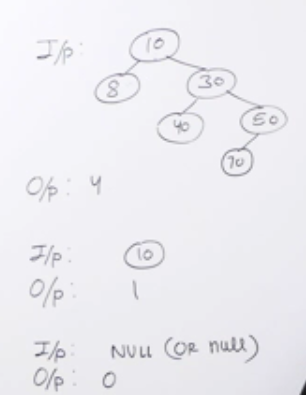 I/p:
10
8 30
40 50
70
O/p: 4
I/p: 10
O/p: 1
I/p: NULL (OR null)
O/p: 0